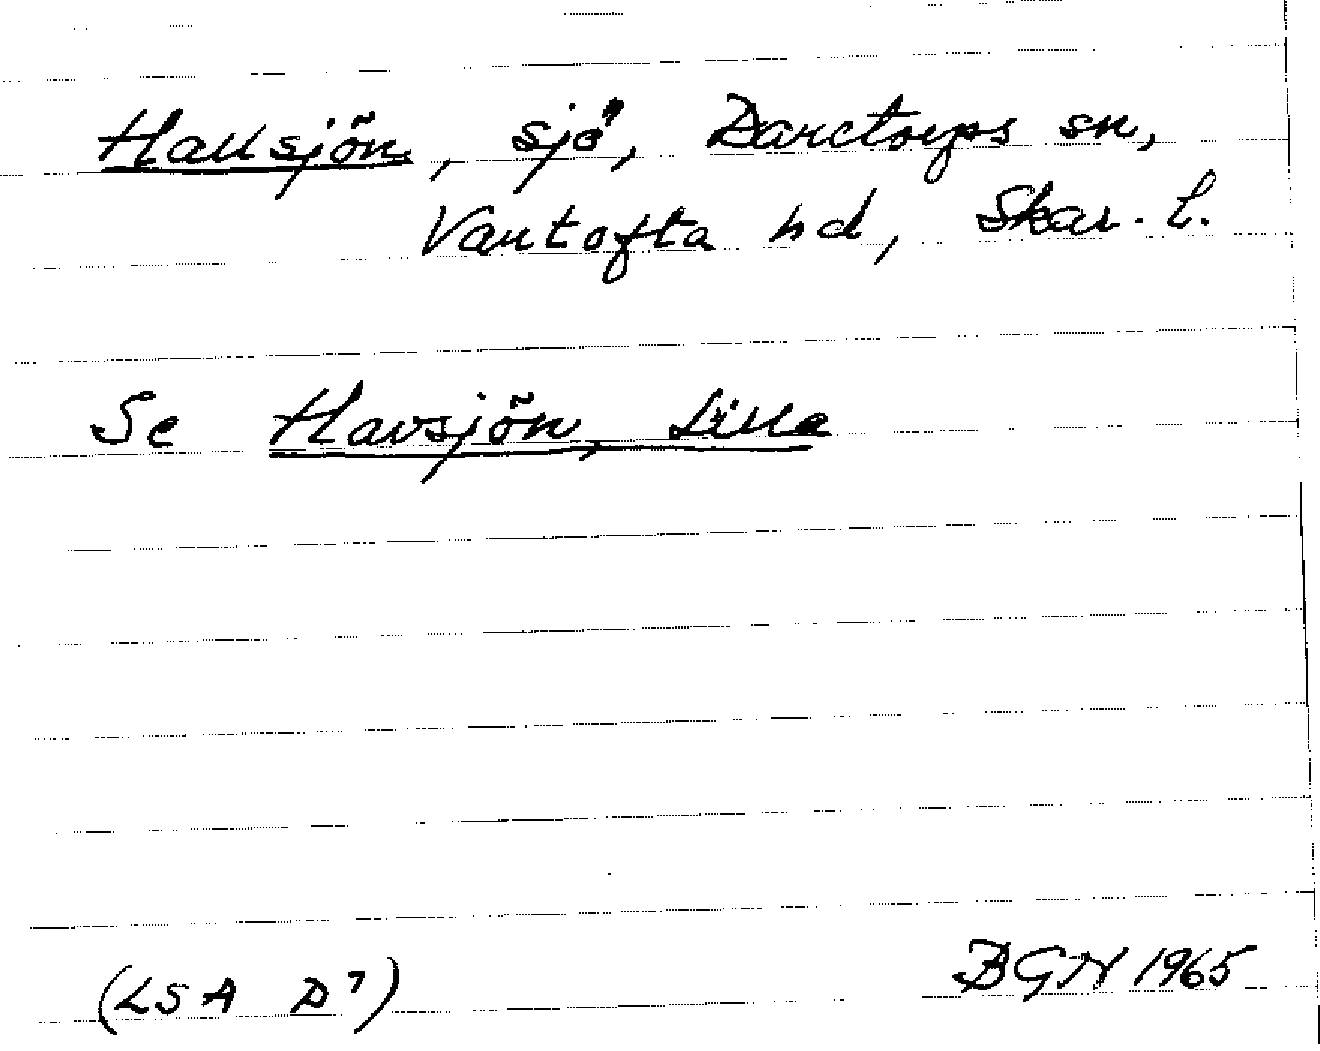 Hallsjön, sjö, Daretorps sn,
Vartofta hd, Skar. l.
Se Havsjön, Lilla
(LSA D7)
BGN 1965